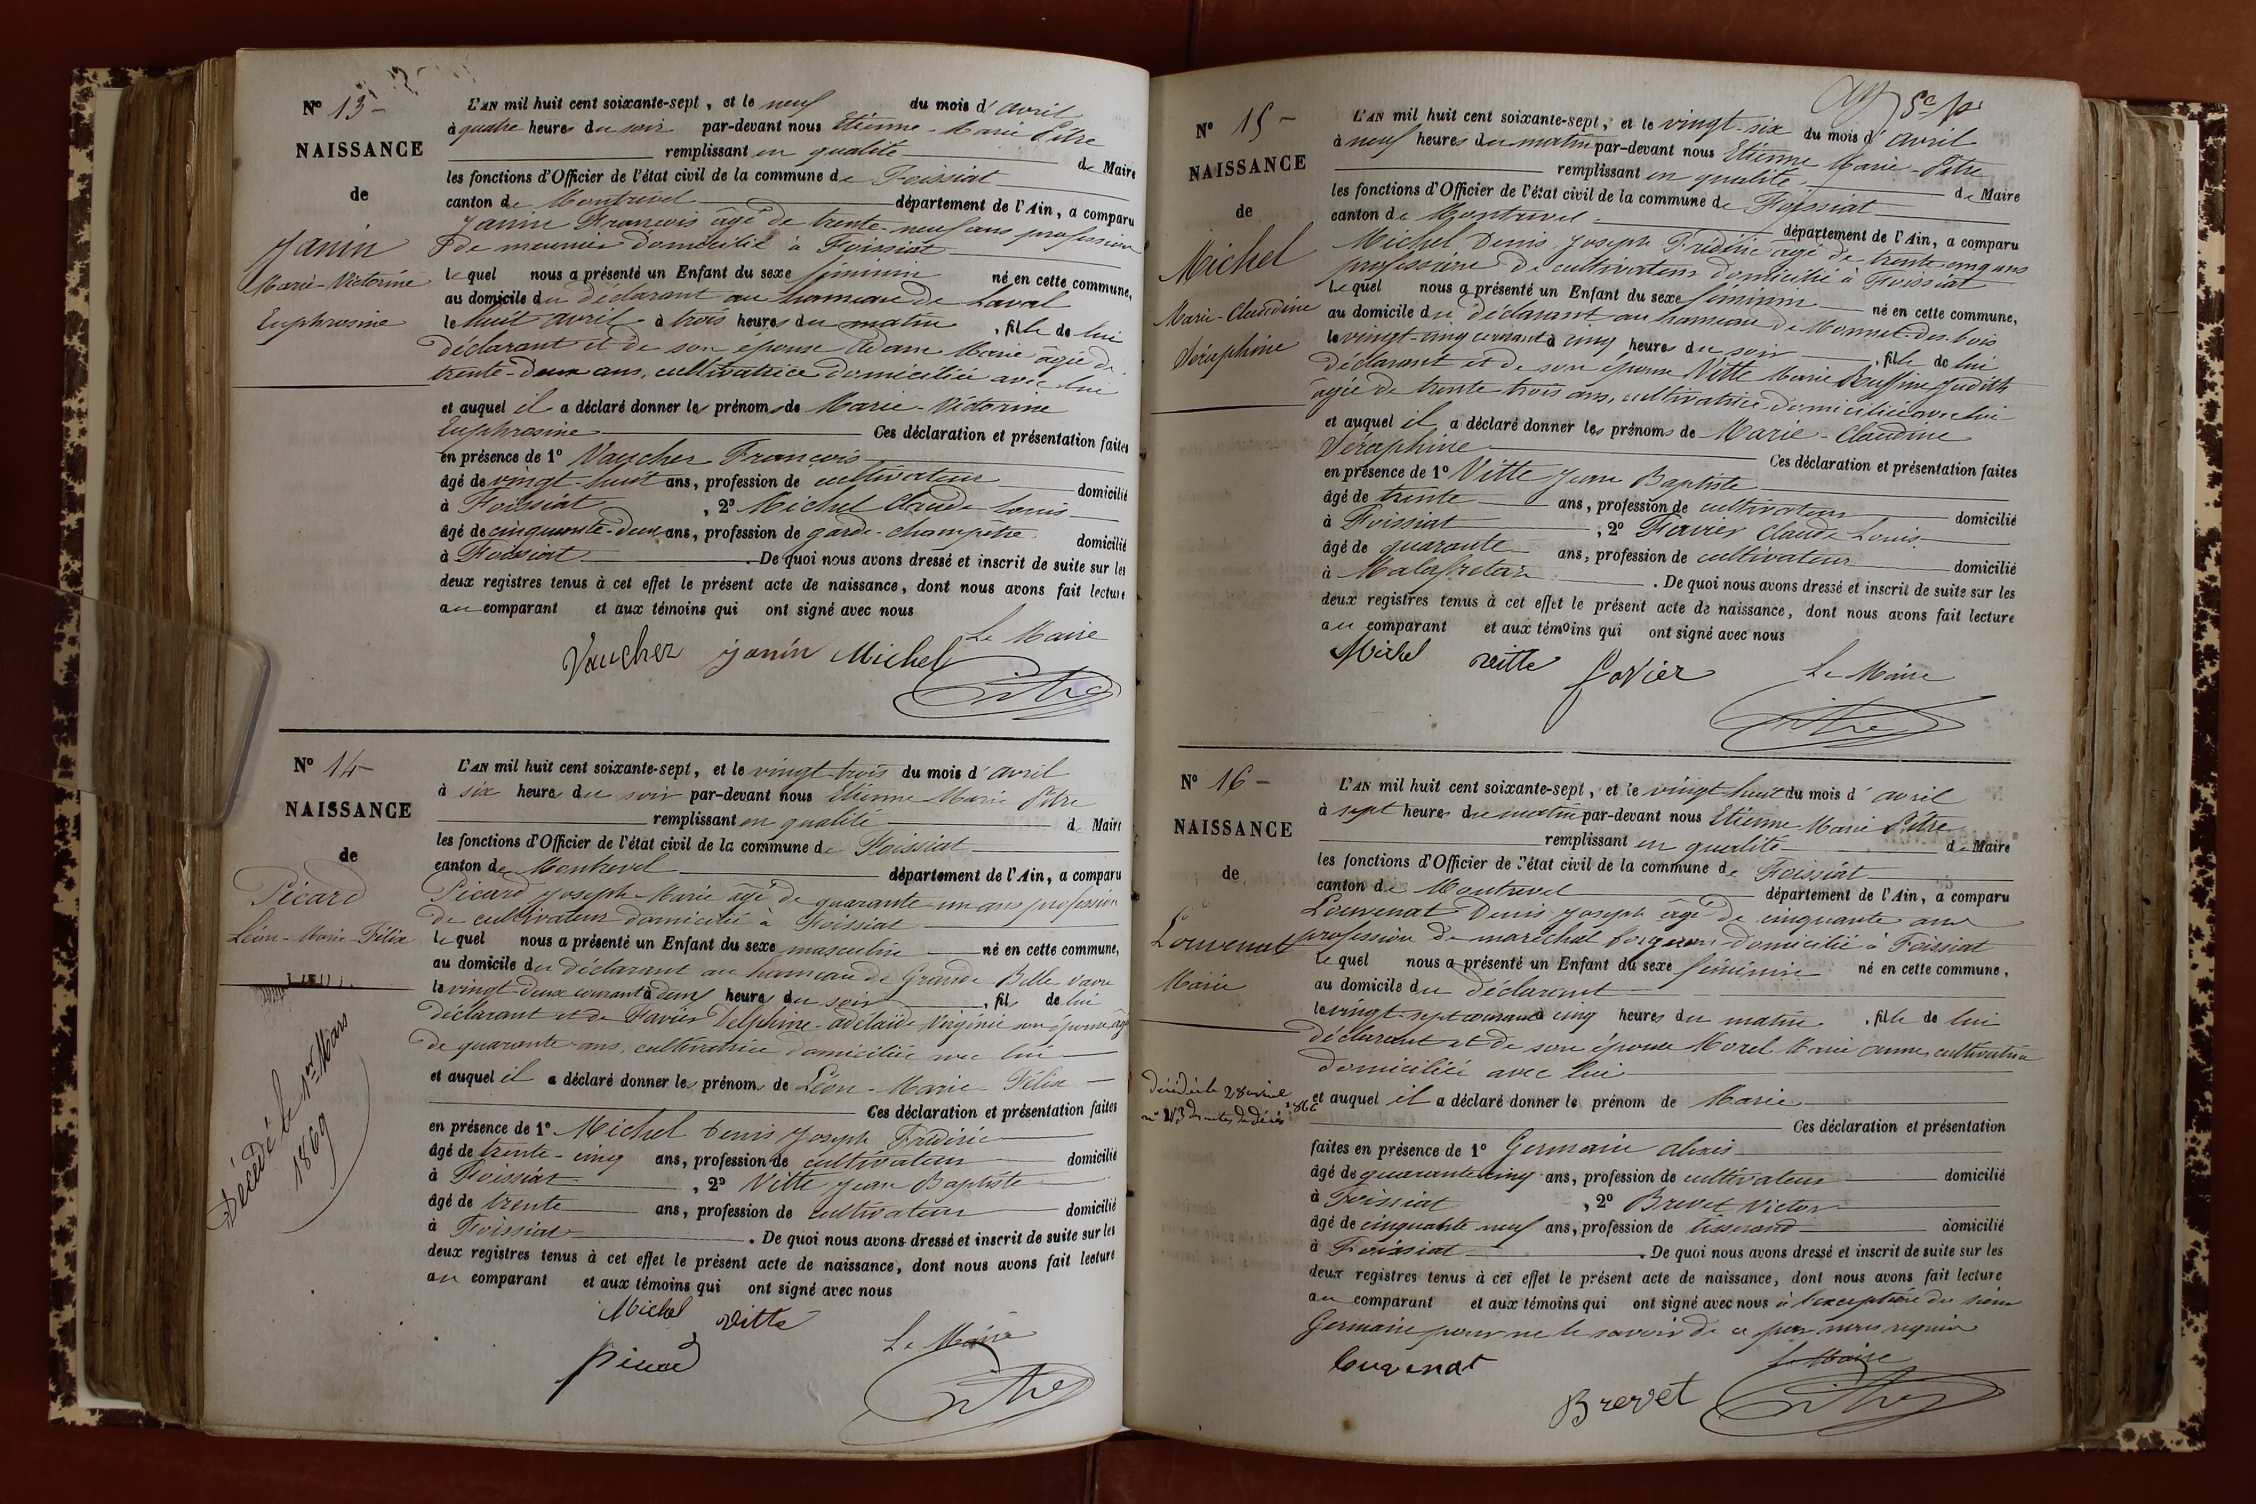 Nº 13
NAISSANCE
de
Janin
Marie-Victorine
Euphrosine
L'AN mil huit cent soixante-sept, et le neuf du mois d'avril
à quatre heures du soir par-devant nous Etienne-Marie Pitre
remplissant en qualité de Maire
les fonctions d'Officier de l'état civil de la commune de Foissiat
canton de Montrevel département de l'Ain, a comparu
Janin François âgé de trente-neuf ans profession
de meunier domicilié à Foissiat
lequel nous a présenté un Enfant du sexe féminin né en cette commune,
au domicile du déclarant au hameau de Laval
le huit avril à trois heures du matin, fille de lui
déclarant et de son épouse Adam Marie âgée de
trente-deux ans, cultivatrice domiciliée avec lui
et auquel il a déclaré donner les prénoms de Marie-Victorine
Euphrosine Ces déclaration et présentation faites
en présence de 1º Vaucher François
âgé de vingt-huit ans, profession de cultivateur domicilié
à Foissiat, 2º Michel Claude Louis
âgé de cinquante-deux ans, profession de garde-champêtre domicilié
à Foissiat. De quoi nous avons dressé et inscrit de suite sur les
deux registres tenus à cet effet le présent acte de naissance, dont nous avons fait lecture
au comparant et aux témoins qui ont signé avec nous
Le Maire
Vaucher janin Michel
Pitre
Nº 14
NAISSANCE
de
Picard
Léon-Marie-Félix
Décédé le 1er Mars
1869
L'AN mil huit cent soixante-sept, et le vingt-trois du mois d'avril
à six heures du soir par-devant nous Etienne Marie Pitre
remplissant en qualité de Maire
les fonctions d'Officier de l'état civil de la commune de Foissiat
canton de Montrevel département de l'Ain, a comparu
Picard Joseph-Marie âgé de quarante-un ans profession
de cultivateur domicilié à Foissiat
lequel nous a présenté un Enfant du sexe masculin né en cette commune,
au domicile du déclarant au hameau de Grande Belle vavre
le vingt-deux courant à deux heures du soir, fils de lui
déclarant et de Favier Delphine-adelaïde Virginie son épouse âgée
de quarante ans, cultivatrice domiciliée avec lui
et auquel il a déclaré donner les prénoms de Léon-Marie-Félix
Ces déclaration et présentation faites
en présence de 1º Michel Denis Joseph Frédéric
âgé de trente-cinq ans, profession de cultivateur domicilié
à Foissiat, 2º Vitte Jean Baptiste
âgé de trente ans, profession de cultivateur domicilié
à Foissiat. De quoi nous avons dressé et inscrit de suite sur les
deux registres tenus à cet effet le présent acte de naissance, dont nous avons fait lecture
au comparant et aux témoins qui ont signé avec nous
Michel vitte
Le Maire
picard
Pitre
Nº 15
NAISSANCE
de
Michel
Marie-Claudine
Séraphine
L'AN mil huit cent soixante-sept, et le vingt-six du mois d'avril
à neuf heures du matin par-devant nous Etienne Marie-Pitre
remplissant en qualité de Maire
les fonctions d'Officier de l'état civil de la commune de Foissiat
canton de Montrevel département de l'Ain, a comparu
Michel Denis Joseph Frédéric âgé de trente-cinq ans
profession de cultivateur domicilié à Foissiat
lequel nous a présenté un Enfant du sexe féminin né en cette commune,
au domicile du déclarant au hameau de Monnet-des-bois
le vingt-cinq courant à cinq heures du soir, fille de lui
déclarant et de son épouse Vitte Marie Judith
âgée de trente trois ans, cultivatrice domiciliée avec lui
et auquel il a déclaré donner les prénoms de Marie-Claudine
Séraphine Ces déclaration et présentation faites
en présence de 1º Vitte Jean Baptiste
âgé de trente ans, profession de cultivateur domicilié
à Foissiat, 2º Favier Claude Louis
âgé de quarante ans, profession de cultivateur domicilié
à Malafretaz. De quoi nous avons dressé et inscrit de suite sur les
deux registres tenus à cet effet le présent acte de naissance, dont nous avons fait lecture
au comparant et aux témoins qui ont signé avec nous
Michel vitte favier
Le Maire
Pitre
Nº 16
NAISSANCE
de
Louvenat
Marie
L'AN mil huit cent soixante-sept, et le vingt-huit du mois d'avril
à sept heures du matin par-devant nous Etienne Marie Pitre
remplissant en qualité de Maire
les fonctions d'Officier de l'état civil de la commune de Foissiat
canton de Montrevel département de l'Ain, a comparu
Louvenat Denis Joseph âgé de cinquante ans
profession de maréchal forgeron domicilié à Foissiat
lequel nous a présenté un Enfant du sexe féminin né en cette commune,
au domicile du déclarant
le vingt-sept courant à cinq heures du matin, fille de lui
déclarant et de son épouse Morel Marie anne, cultivatrice
domiciliée avec lui
et auquel il a déclaré donner le prénom de Marie
Ces déclaration et présentation
faites en présence de 1º Germain alexis
âgé de quarante cinq ans, profession de cultivateur domicilié
à Foissiat, 2º Brevet Victor
âgé de cinquante neuf ans, profession de tisserand domicilié
à Foissiat. De quoi nous avons dressé et inscrit de suite sur les
deux registres tenus à cet effet le présent acte de naissance, dont nous avons fait lecture
au comparant et aux témoins qui ont signé avec nous à l'exception du sieur
Germain pour ne le savoir de ce par nous requis
Louvenat
Le Maire
Brevet
Pitre